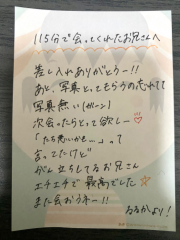 115分で会ってくれたお兄さんへ
差し入れありがとうー!!
あと、写真とってもらうの忘れてて
写真無い(ガーン)
次会ったらとって欲しー♡
「たち悪いかも…」って
言ってたけど
がん立ちしてるお兄さん
エチエチで最高でした☆
また会おうネー!!
るるかより!